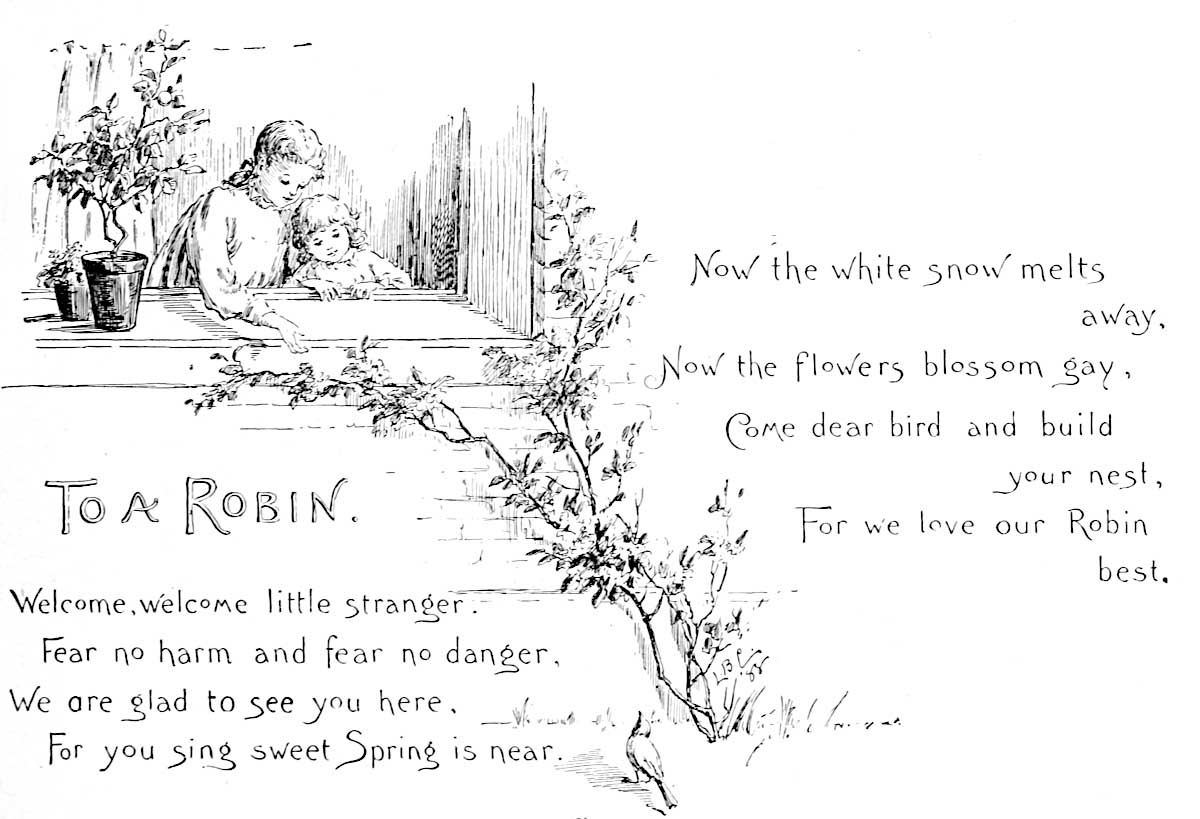 TO A ROBIN.
Welcome, welcome little stranger.
Fear no harm and fear no danger,
We are glad to see you here,
For you sing sweet Spring is near.
Now the white snow melts
away,
Now the flowers blossom gay,
Come dear bird and build
your nest,
For we love our Robin
best.